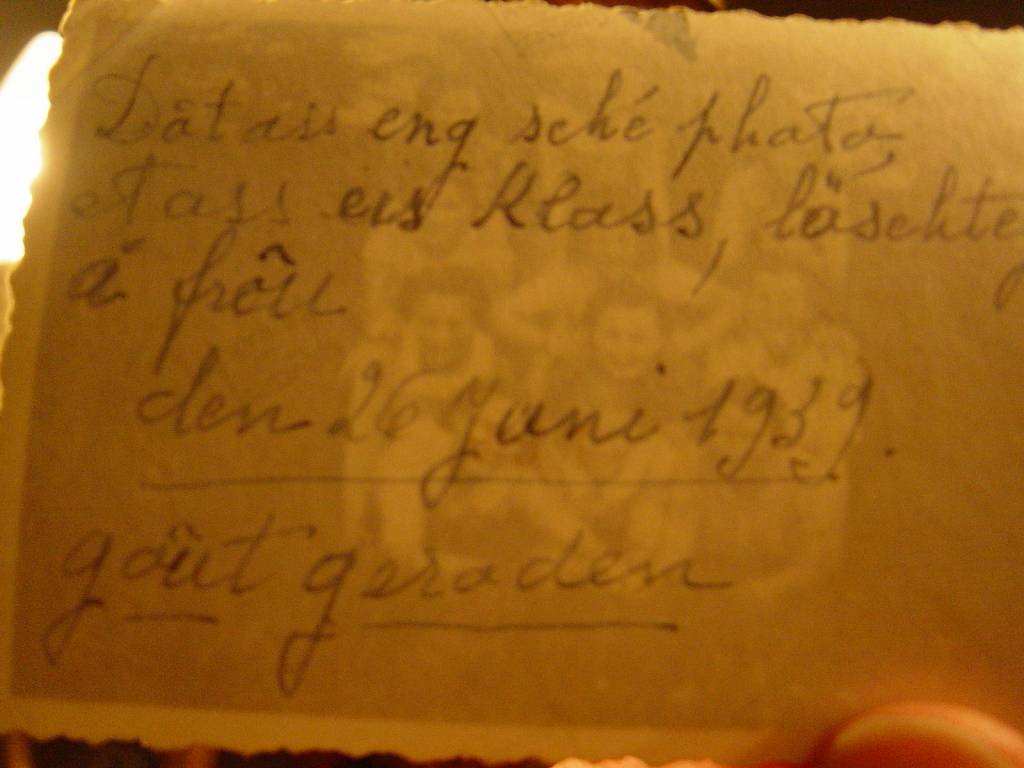 Dât ass eng sché phato,
et ass eis Klass, löschteg
á frôu
den 26 Juni 1939.
goût geroden